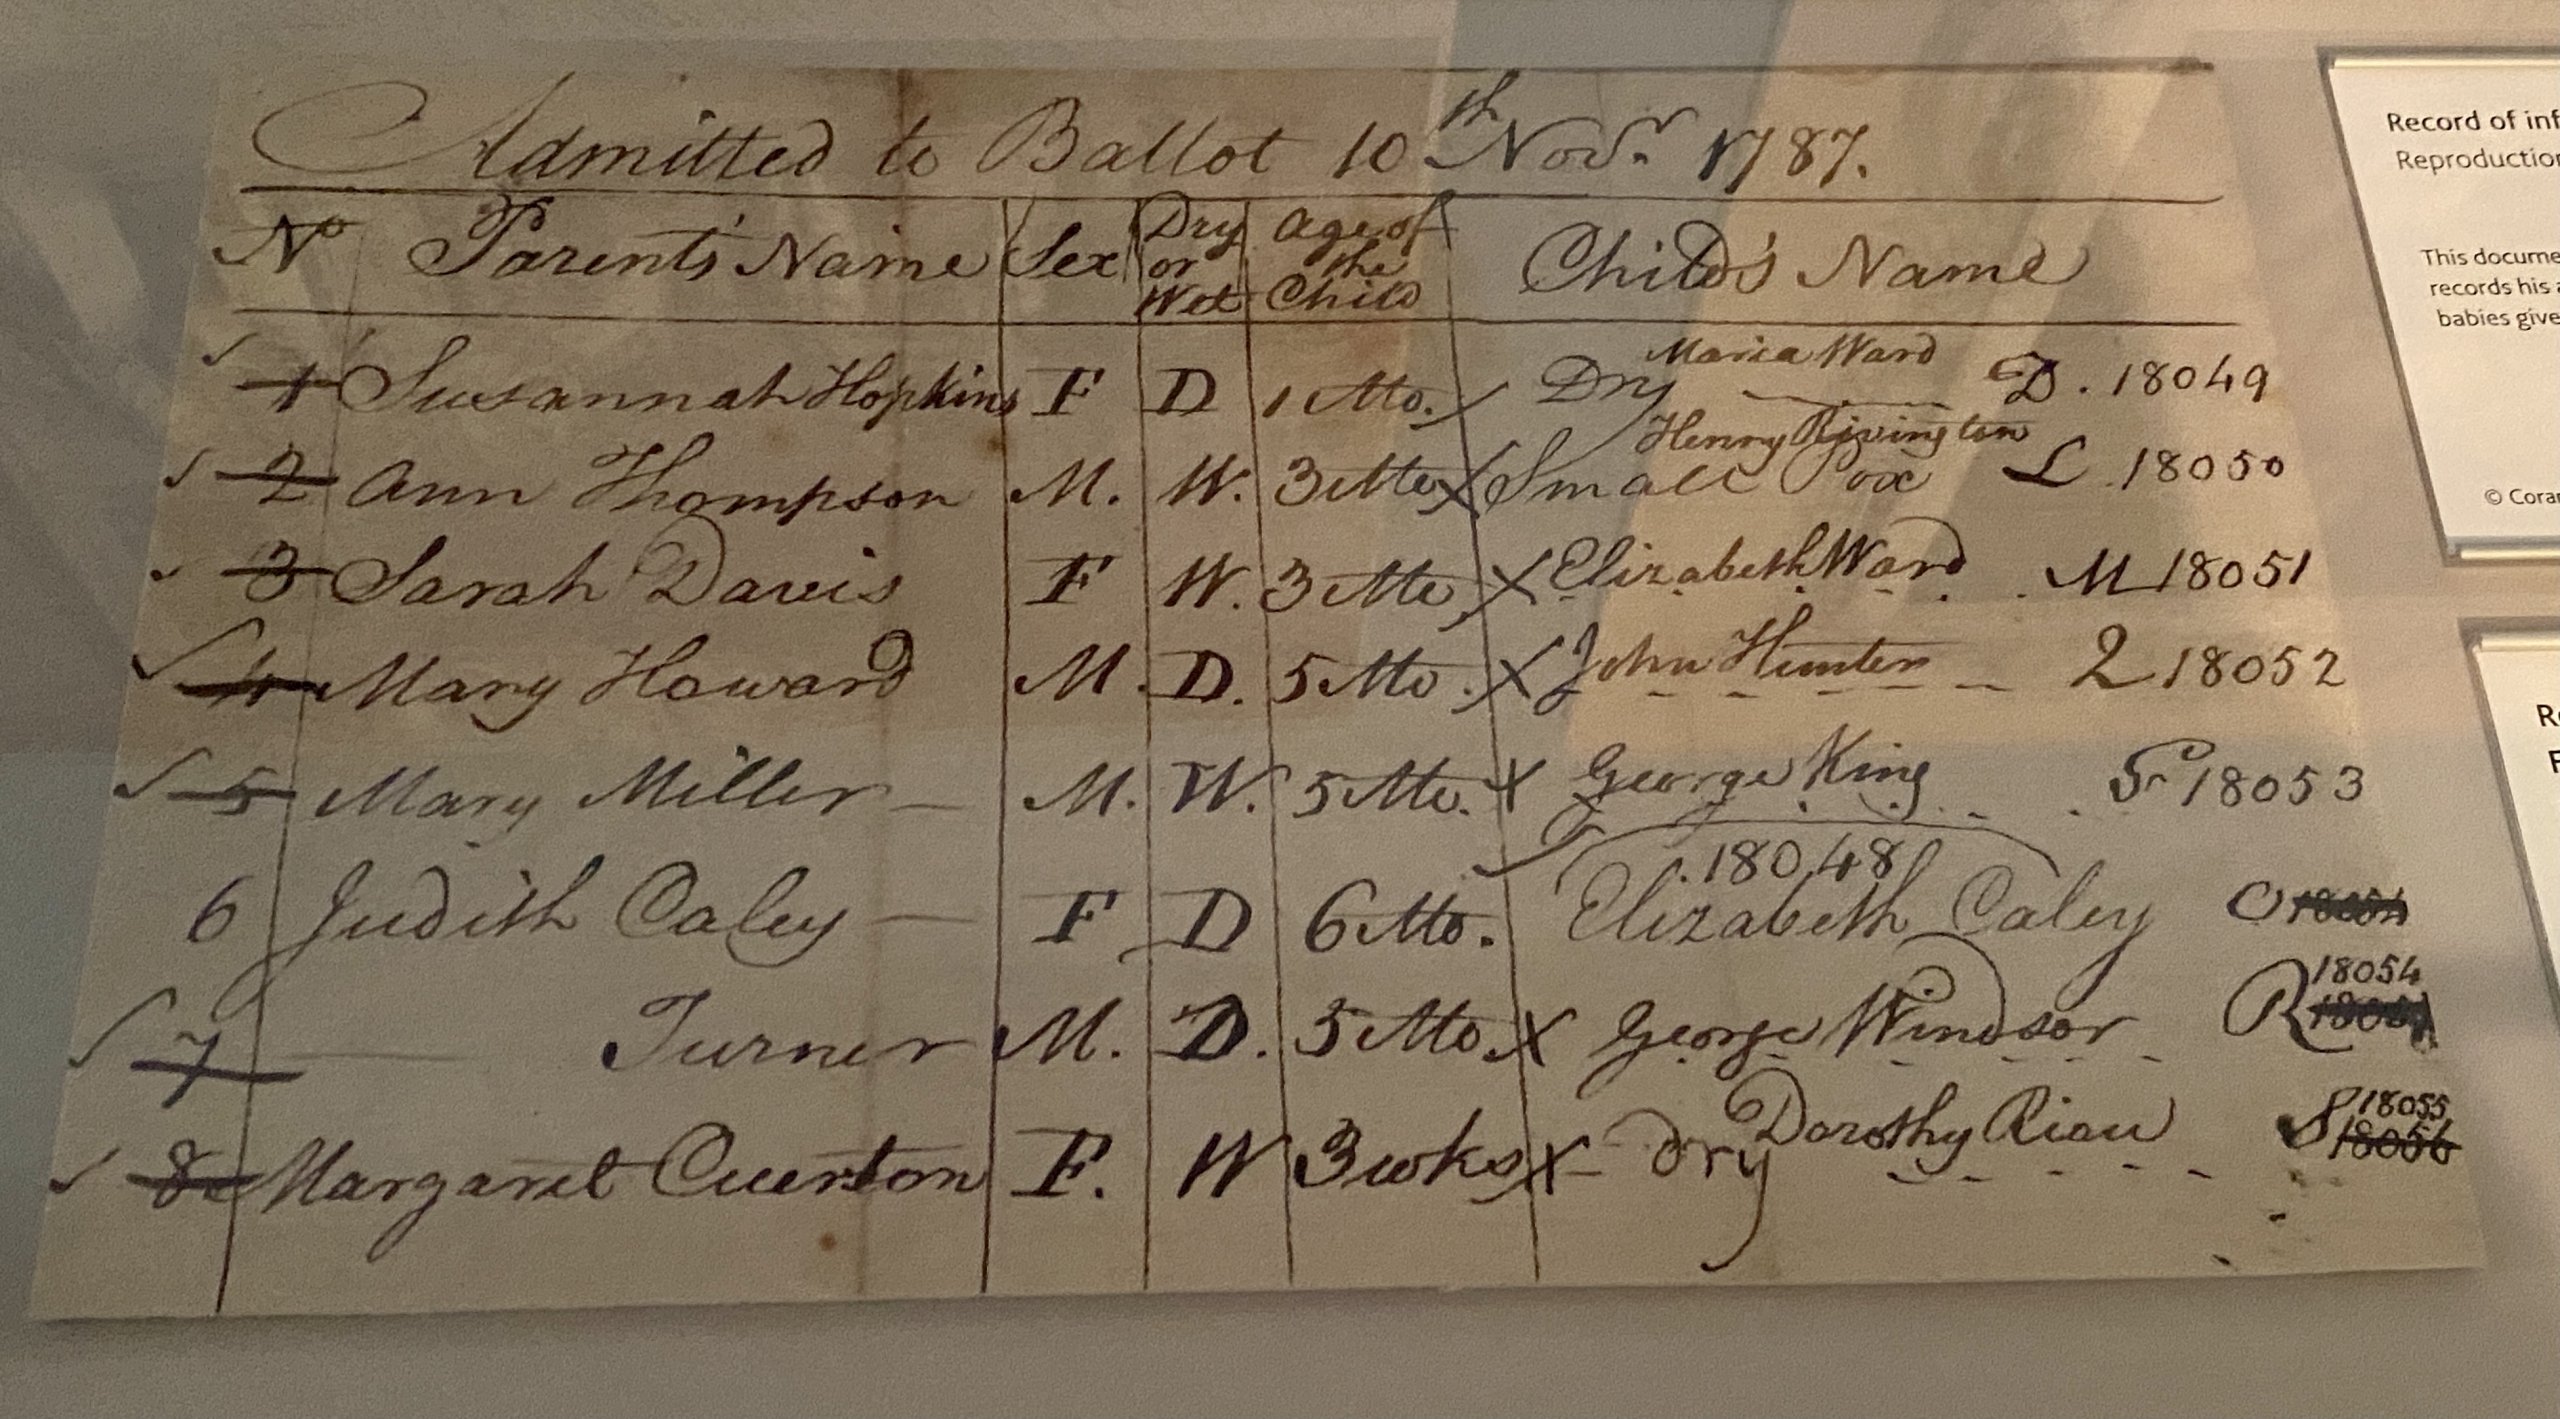 Admitted to Ballot 10th Novr. 1787.
No Parent's Name Sex Dry or Wet Age of the Child Child's Name
1 Susannah Hopkins F D 1 Mo. Dry Maria Ward D. 18049
2 Ann Thompson M. W. 3 Mo X Small Pox Henry Rivington L 18050
3 Sarah Davis F W. 3 Mo. X Elizabeth Ward M 18051
4 Mary Howard M. D. 5 Mo. X John Hunter 2 18052
5 Mary Miller M. W. 5 Mo. X George King 18053
18048
6 Judith Caley F D 6 Mo. Elizabeth Caley O
7 Turner M. D. 5 Mo X George Windsor R 18054
8 Margaret F. W 3 wks X Dry Dorothy S 18055
18056
Record of inf
Reproduction
This docume
records his a
babies give
© Coram